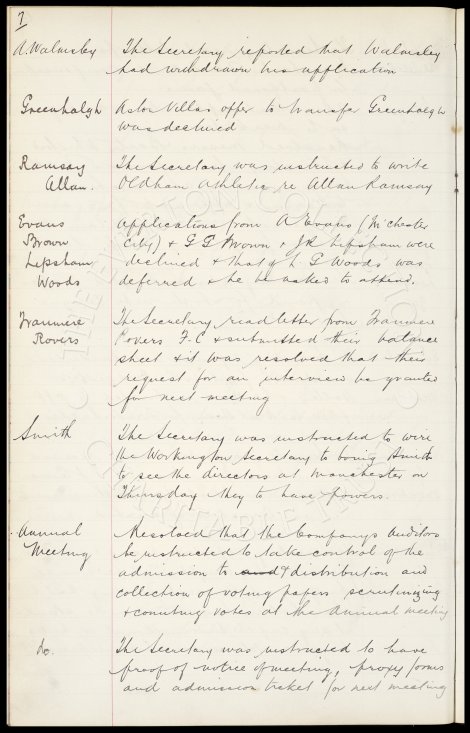 7
A. Walmsley The Secretary reported that Walmsley
had withdrawn his application
Greenhalgh Aston Villas offer to transfer Greenhalgh
was declined
Ramsay The Secretary was instructed to write
Allan. Oldham Athletic re Allan Ramsay
Evans Applications from A Evans (M'chester
Brown City) & G T Brown & J R Lipsham were
Lipsham declined & that of L G Woods was
Woods deferred & he be asked to attend.
Tranmere The Secretary read letter from Tranmere
Rovers Rovers F.C & submitted their balance
sheet & it was resolved that their
request for an interview be granted
for next meeting
Smith The Secretary was instructed to wire
the Workington Secretary to bring Smith
to see the directors at Manchester on
Thursday they to have powers.
Annual Resolved that the Companys Auditors
Meeting be instructed to take control of the
admission to and & distribution and
collection of voting papers scrutinizing
& counting votes at the Annual meeting
do. The Secretary was instructed to have
proof of notice of meeting, proxy forms
and admission ticket for next meeting